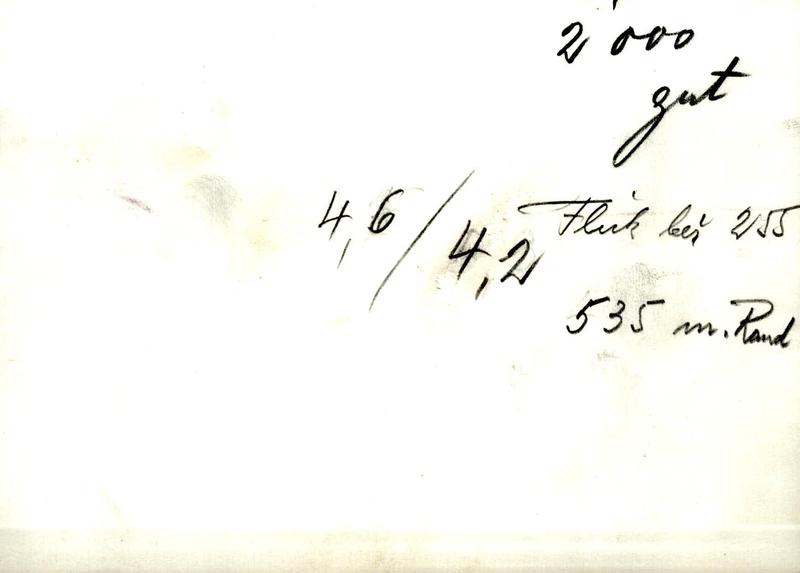 2'000
gut
4,6 / 4,2
Flick bei 255
535 m. Rand